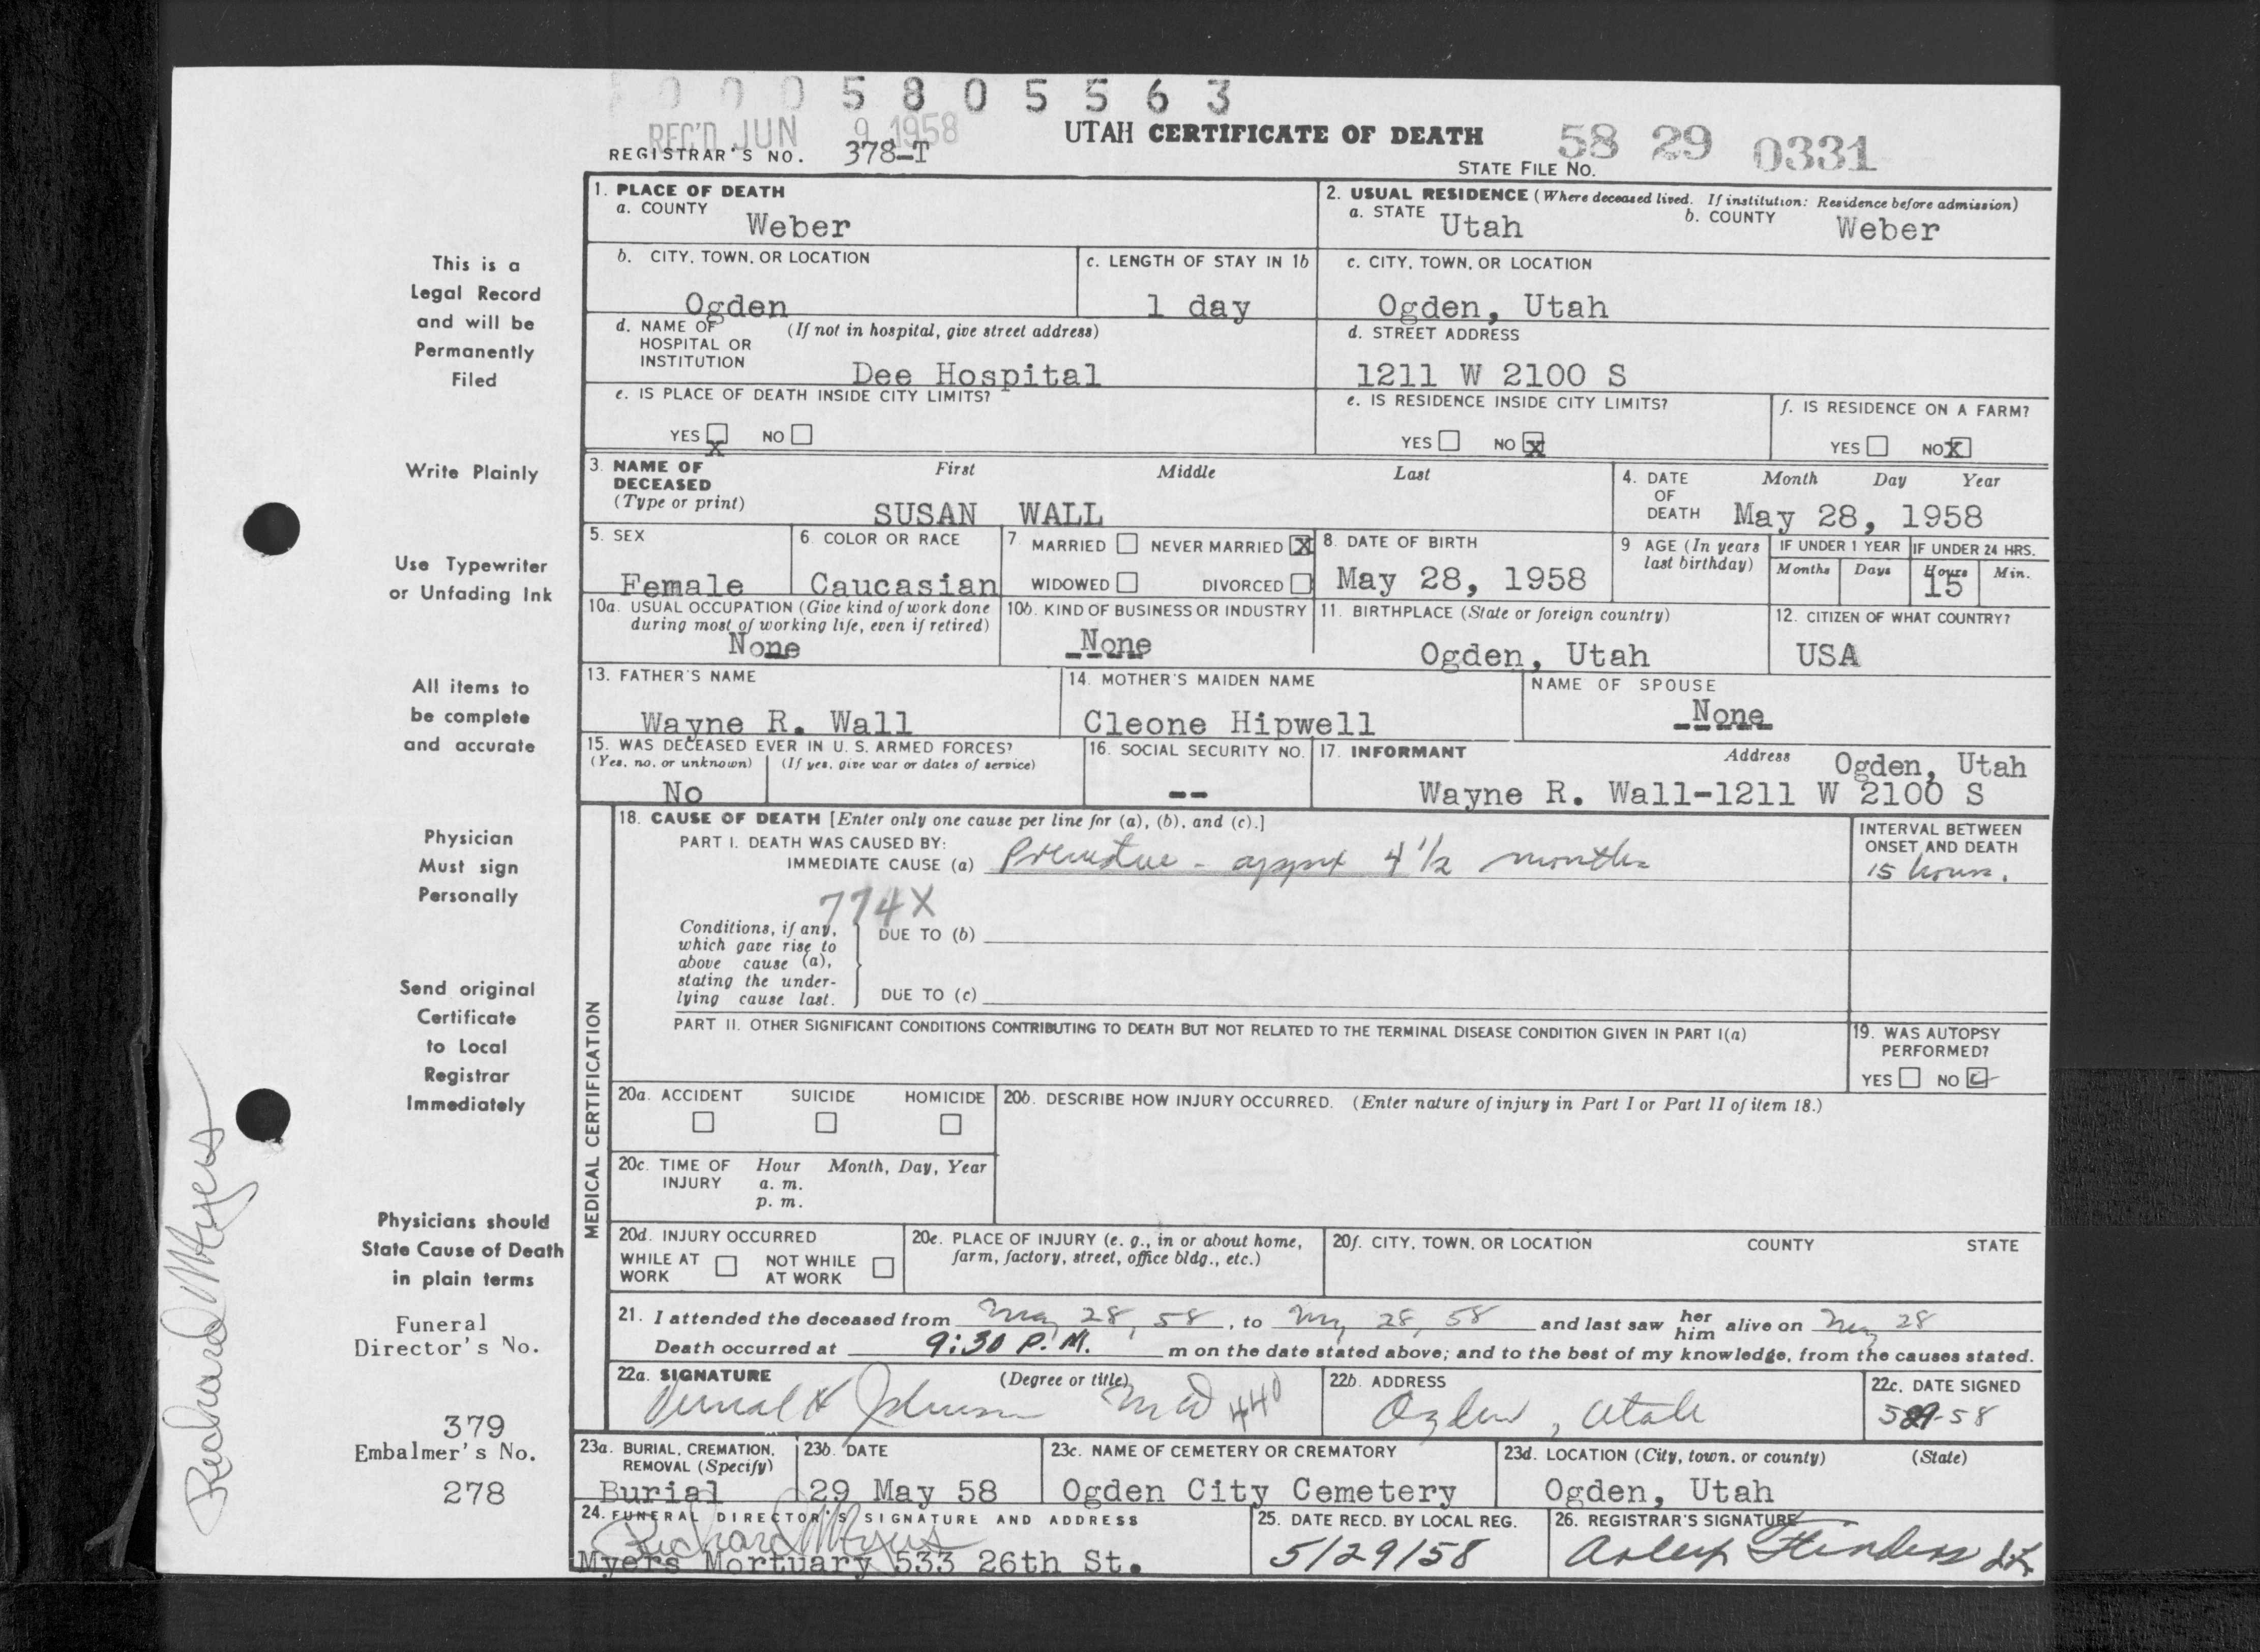 0 0 0 5 8 0 5 5 6 3
REC'D JUN 9 1958
UTAH CERTIFICATE OF DEATH
58 29 0331
REGISTRAR'S NO. 378-T
STATE FILE NO.
1. PLACE OF DEATH
a. COUNTY
Weber
2. USUAL RESIDENCE (Where deceased lived. If institution: Residence before admission)
a. STATE Utah b. COUNTY Weber
b. CITY, TOWN, OR LOCATION
Ogden
c. LENGTH OF STAY IN 1b
1 day
c. CITY, TOWN, OR LOCATION
Ogden, Utah
d. NAME OF (If not in hospital, give street address)
HOSPITAL OR
INSTITUTION
Dee Hospital
d. STREET ADDRESS
1211 W 2100 S
e. IS PLACE OF DEATH INSIDE CITY LIMITS?
YES X NO
e. IS RESIDENCE INSIDE CITY LIMITS?
YES NO X
f. IS RESIDENCE ON A FARM?
YES NO X
3. NAME OF DECEASED
(Type or print)
First Middle Last
SUSAN WALL
4. DATE OF DEATH
Month Day Year
May 28, 1958
5. SEX
Female
6. COLOR OR RACE
Caucasian
7. MARRIED NEVER MARRIED X
WIDOWED DIVORCED
8. DATE OF BIRTH
May 28, 1958
9 AGE (In years
last birthday)
IF UNDER 1 YEAR
Months Days
IF UNDER 24 HRS.
Hours Min.
15
10a. USUAL OCCUPATION (Give kind of work done
during most of working life, even if retired)
None
10b. KIND OF BUSINESS OR INDUSTRY
None
11. BIRTHPLACE (State or foreign country)
Ogden, Utah
12. CITIZEN OF WHAT COUNTRY?
USA
13. FATHER'S NAME
Wayne R. Wall
14. MOTHER'S MAIDEN NAME
Cleone Hipwell
NAME OF SPOUSE
None
15. WAS DECEASED EVER IN U. S. ARMED FORCES?
(Yes, no, or unknown) (If yes, give war or dates of service)
No
16. SOCIAL SECURITY NO.
--
17. INFORMANT Address
Ogden, Utah
Wayne R. Wall-1211 W 2100 S
MEDICAL CERTIFICATION
18. CAUSE OF DEATH [Enter only one cause per line for (a), (b), and (c).]
PART I. DEATH WAS CAUSED BY:
IMMEDIATE CAUSE (a) Premature - approx 4 1/2 months
INTERVAL BETWEEN
ONSET AND DEATH
15 hours.
774X
Conditions, if any,
which gave rise to
above cause (a),
stating the under-
lying cause last.
DUE TO (b)
DUE TO (c)
PART II. OTHER SIGNIFICANT CONDITIONS CONTRIBUTING TO DEATH BUT NOT RELATED TO THE TERMINAL DISEASE CONDITION GIVEN IN PART I(a)
19. WAS AUTOPSY
PERFORMED?
YES NO
20a. ACCIDENT SUICIDE HOMICIDE
20b. DESCRIBE HOW INJURY OCCURRED. (Enter nature of injury in Part I or Part II of item 18.)
20c. TIME OF INJURY
Hour Month, Day, Year
a. m.
p. m.
20d. INJURY OCCURRED
WHILE AT WORK NOT WHILE AT WORK
20e. PLACE OF INJURY (e. g., in or about home,
farm, factory, street, office bldg., etc.)
20f. CITY, TOWN, OR LOCATION COUNTY STATE
21. I attended the deceased from May 28, 58, to May 28, 58 and last saw her him alive on May 28
Death occurred at 9:30 P.M. m on the date stated above; and to the best of my knowledge, from the causes stated.
22a. SIGNATURE (Degree or title)
Johnson MD 440
22b. ADDRESS
Ogden, Utah
22c. DATE SIGNED
529-58
23a. BURIAL, CREMATION,
REMOVAL (Specify)
Burial
23b. DATE
29 May 58
23c. NAME OF CEMETERY OR CREMATORY
Ogden City Cemetery
23d. LOCATION (City, town, or county) (State)
Ogden, Utah
24. FUNERAL DIRECTOR'S SIGNATURE AND ADDRESS
Richard Myers
Myers Mortuary 533 26th St.
25. DATE RECD. BY LOCAL REG.
5/29/58
26. REGISTRAR'S SIGNATURE
Flinders
This is a
Legal Record
and will be
Permanently
Filed
Write Plainly
Use Typewriter
or Unfading Ink
All items to
be complete
and accurate
Physician
Must sign
Personally
Send original
Certificate
to Local
Registrar
Immediately
Physicians should
State Cause of Death
in plain terms
Funeral
Director's No.
379
Embalmer's No.
278
Richard Myers